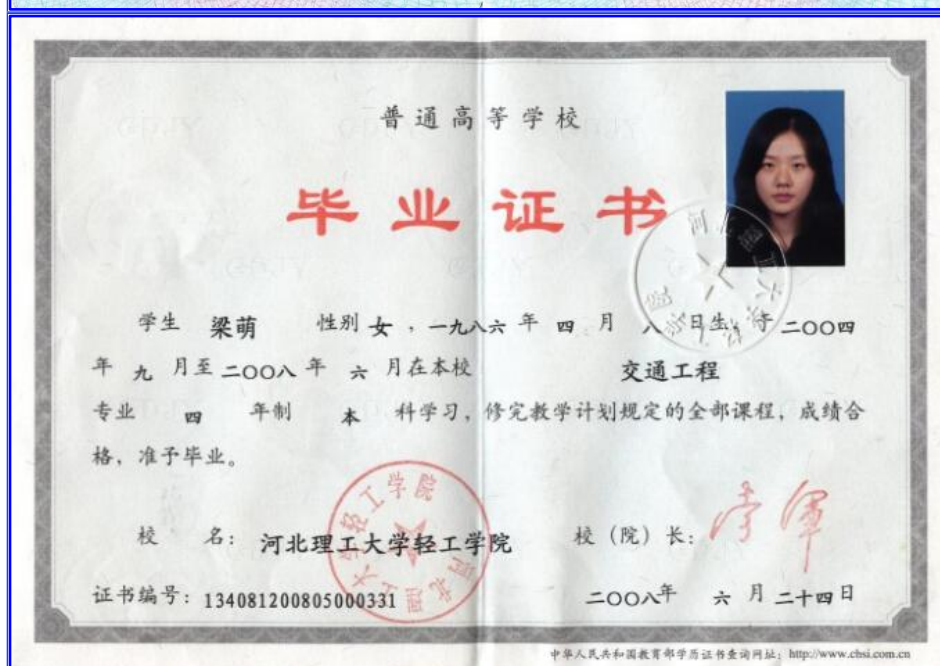 普通高等学校
毕业证书
学生 梁萌 性别 女，一九八六 年 四 月 八 日生，于 二〇〇四
年 九 月至 二〇〇八 年 六 月在本校 交通工程
专业 四 年制 本 科学习，修完教学计划规定的全部课程，成绩合
格，准予毕业。
校 名：河北理工大学轻工学院 校（院）长：
证书编号：134081200805000331 二〇〇八年 六 月 二十四日
河北理工大学轻工学院
中华人民共和国教育部学历证书查询网址：http://www.chsi.com.cn